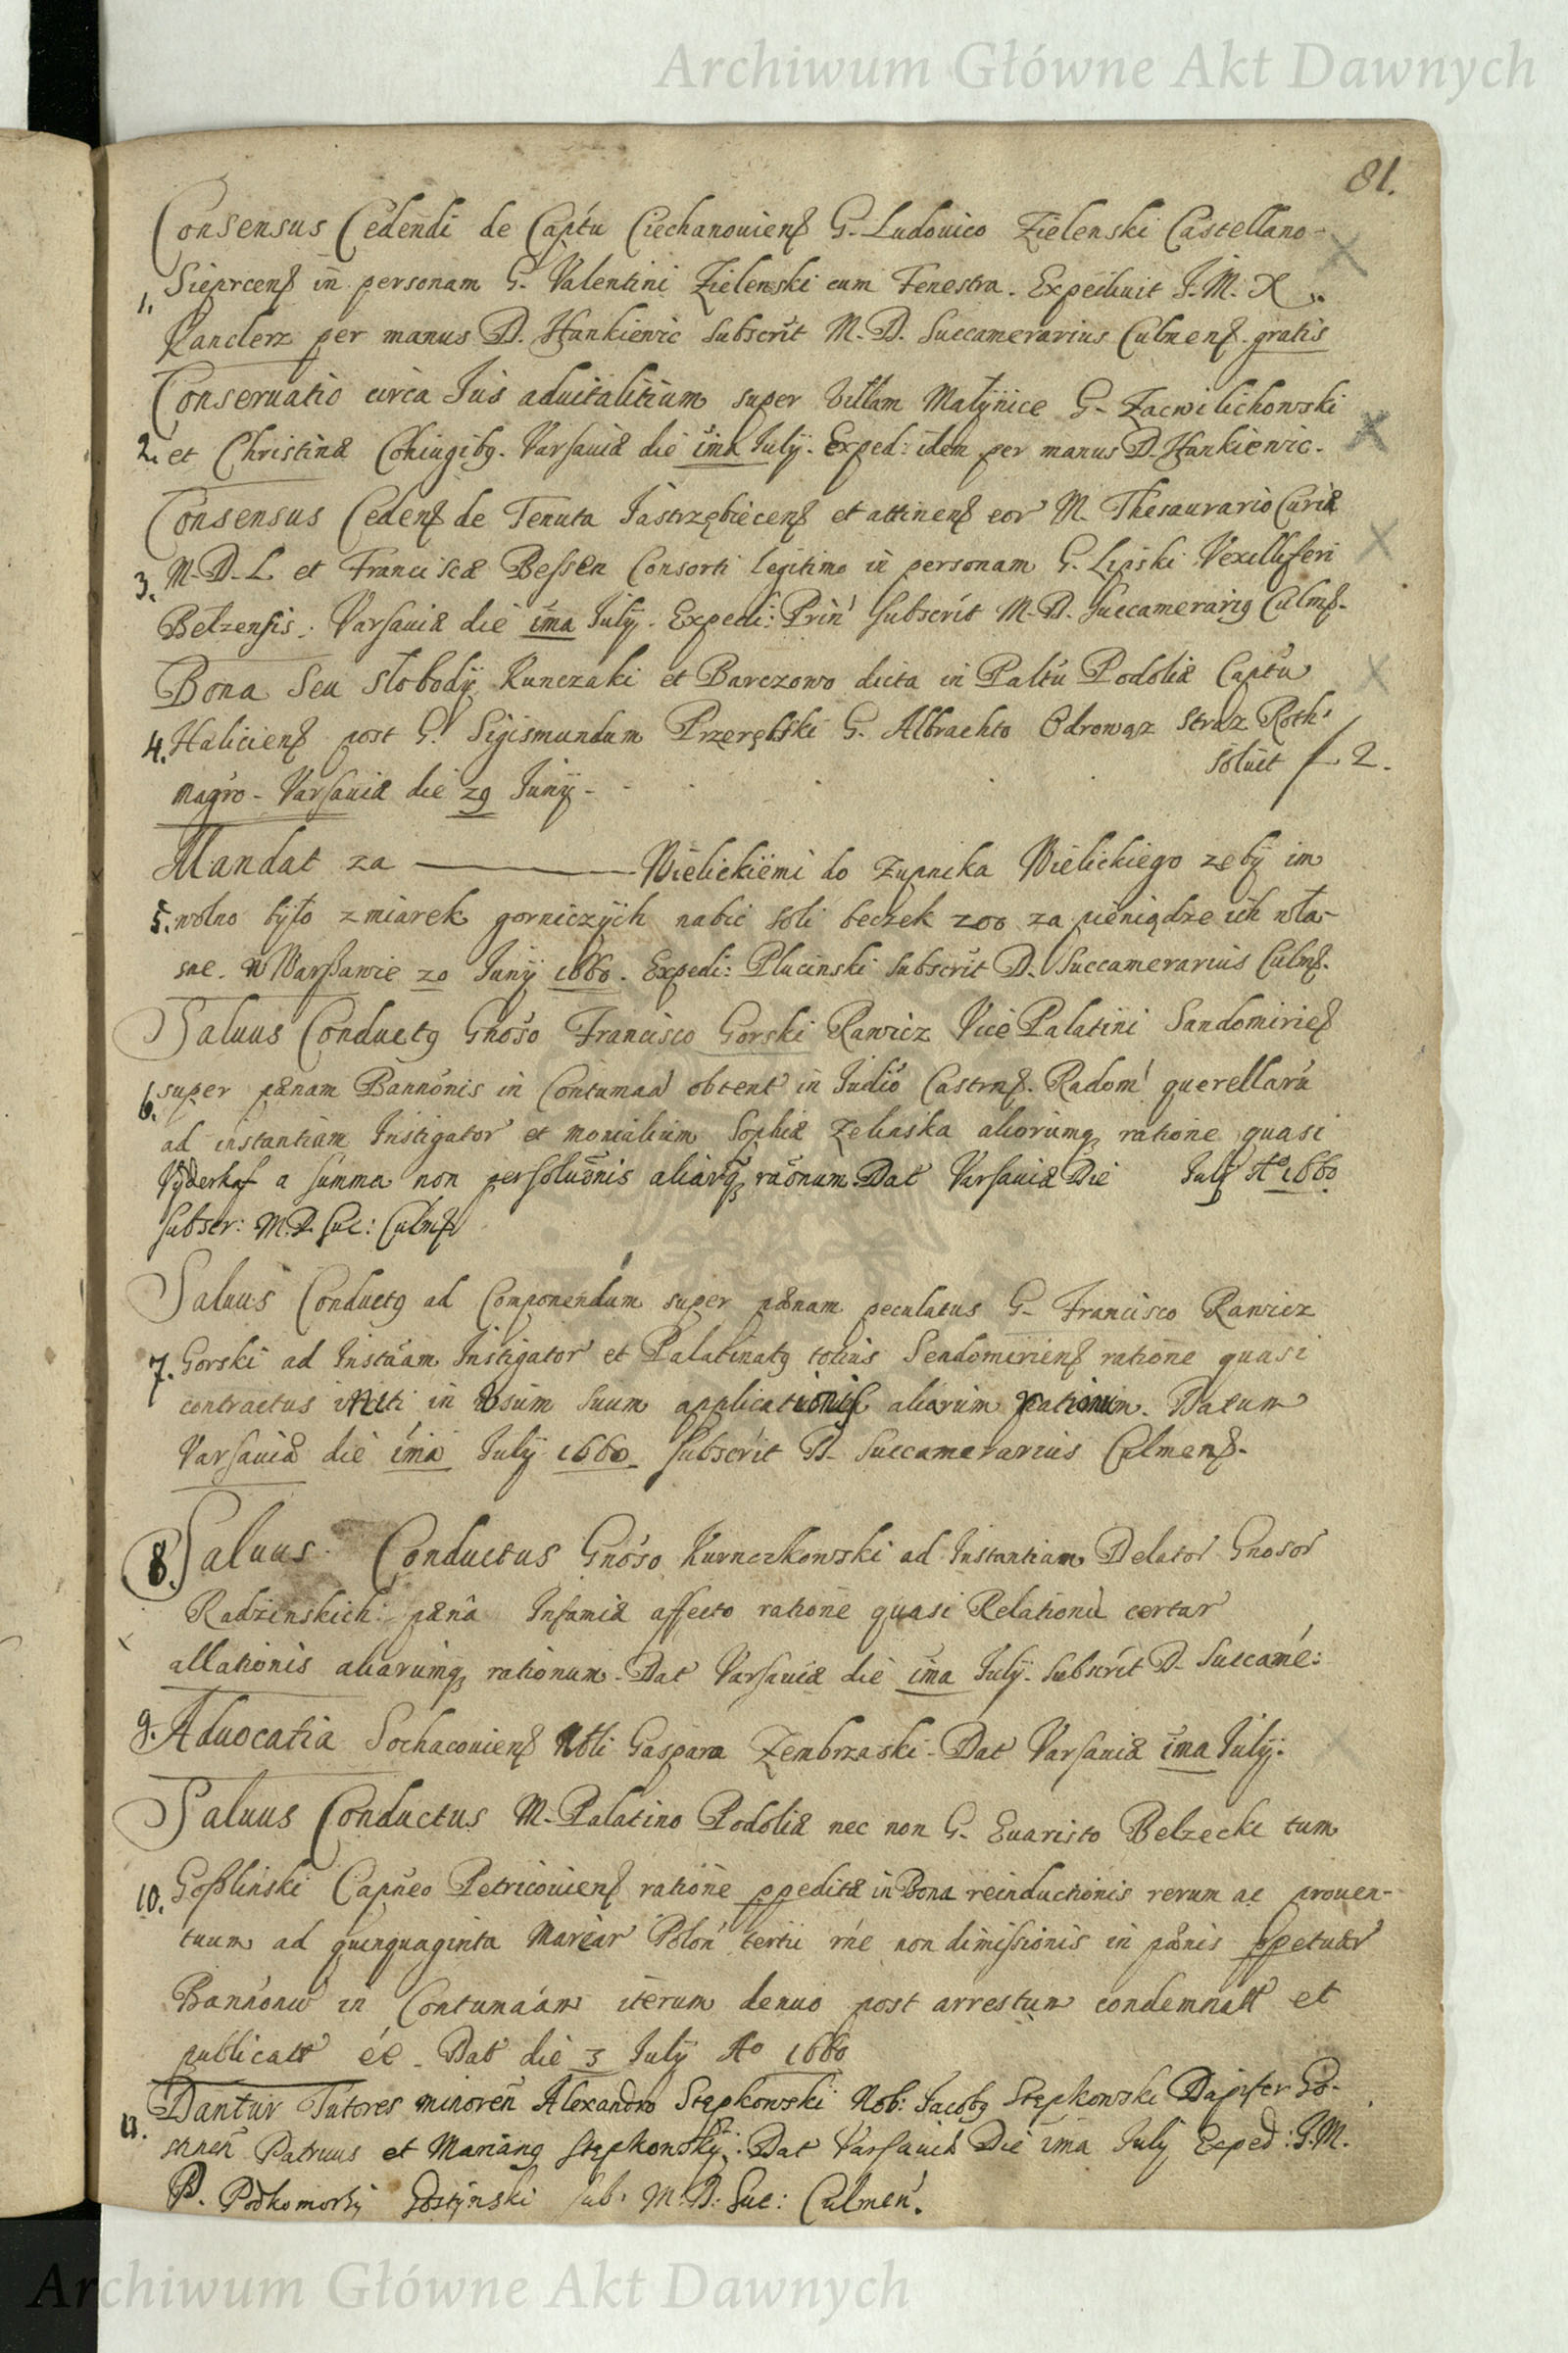 Archiwum Główne Akt Dawnych
81.
Consensus Cedendi de Captu Ciechanouiens G. Ludouico Zielenski Castellano
Sieprcens in personam G. Valentini Zielenski cum Fenestra. Expediuit J. M. X
1.
Kanclerz per manus D. Hankiewic Subscrit M. D. Succamerarius Culmens. gratis
Conseruatio circa Jus aduitalitium super Villam Matynice G. Zacwilichowski
2. et Christinæ Coniugibg. Varsauiæ die ima July. Exped: idem per manus D. Hankiewic.
Consensus Cedens de Tenuta Jastrzębiecens et attinens eor M. Thesaurario Curiæ
3. M. D. L. et Franciscæ Bessen Consorti legitimo in personam G. Lipski Vexilliferi
Belzensis. Varsauiæ die ima July. Exped: Prin Subscrit M. D. Succamerarig Culms.
Bona Seu Słobody Kunczaki et Barczowo dicta in Paltu Podoliæ Captu
4. Haliciens post G. Sigismundum Przerębski G. Albrachto Odrowąz Straz Roth
soluit f 2.
magro. Varsauiæ die 29 Juny.
Mandat za ——— Wielickiemi do Zupnika Wielickiego zeby im
5. wolno było z miarek gorniczych nabic soli beczek 200 za pieniądze ich wła-
sne. w Warszawie 20 Juny 1660. Expedi: Plucinski Subscrit D. Succamerarius Culms.
Saluus Conductg Gnoso Francisco Gorski Rawicz Vice Palatini Sandomiries
6. super pænam Bannonis in Contumaa obtent in Judio Castrns. Radom querellaru
ad instantiam Instigator et monialium Sophiæ Zelinska aliorumq ratione quasi
Vyderkaf a summa non persoluonis aliarq raonum. Dat Varsauiæ Die July Ao 1660
Subscr: M. D. Suc: Culms
Saluus Conductg ad Componendum super pænam peculatus G. Francisco Rawicz
7. Gorski ad Instaam Instigator et Palatinatg totius Sendomiriens ratione quasi
contractus initi in Vsum suum applicationis aliarum rationum. Datum
Varsauiæ die ima July 1660. Subscrit D. Succamerarius Culmens.
8. Saluus Conductus Gnoso Kurnczkowski ad Instantiam Delator Gnosor
Radzinskich pæna Infamiæ affecto ratione quasi Relationu certar
allationis aliarumq rationum. Dat Varsauiæ die ima July. Subscrit D. Succame:
9. Aduocatia Sochaconiens Nbli Gaspara Zembrzaski. Dat Varsauiæ ima July.
Saluus Conductus M. Palatino Podoliæ nec non G. Euaristo Belzecki tum
10. Goszlinski Capneo Petricouiens ratione ppeditæ in Bona reinductionis rerum ac prouen-
tuum ad quinquaginta Marcar Polon tertii rne non dimissionis in pænis ppetuar
Bannonu in Contumaam iterum denuo post arrestum condemnatt et
publicatt ee. Dat die 3 July Ao 1660
Dantur Tutores minoren Alexandro Stępkowski Nob: Jacobg Stępkowski Dapifer Go-
11. Patruus et Mariang Stępkowsky. Dat Varsauiæ Die ima July Exped: J. M.
P. Podkomorzy Gostynski Sub. M. D. Suc: Culmen.
Archiwum Główne Akt Dawnych